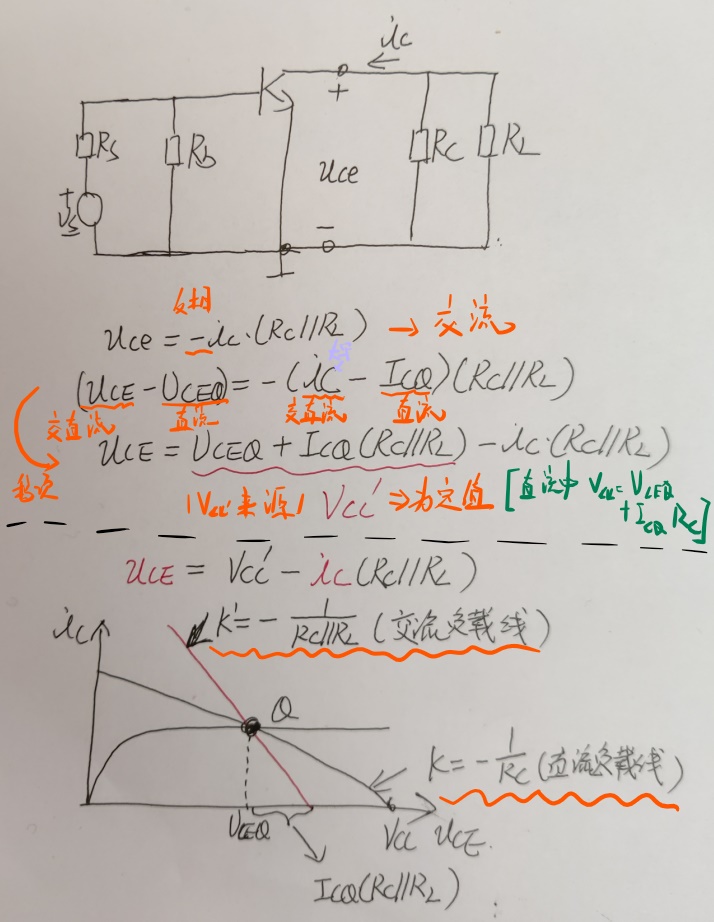 ic
+
Rs
Rb
uce
Rc
RL
+
Vs
-
-
反相
uce = -ic·(Rc//RL) → 交流
(uCE - UCEQ) = -(iC - ICQ)(Rc//RL)
交直流 直流 交直流 直流
移项 uCE = UCEQ + ICQ(Rc//RL) - ic·(Rc//RL)
(Vcc'来源) Vcc' ⇒ 为定值 [直流中 Vcc = UCEQ
+ ICQ Rc]
uCE = Vcc' - ic(Rc//RL)
ic
K' = - 1/Rc//RL (交流负载线)
Q
K = - 1/Rc (直流负载线)
UCEQ Vcc uCE.
ICQ(Rc//RL)